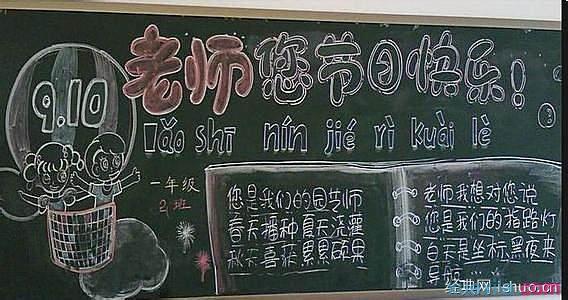 9.10
老师您节日快乐!
lǎo shī nín jié rì kuài lè
一年级
2班
您是我们的园艺师
春天播种夏天浇灌
秋天喜获累累硕果
老师我想对您说
您是我们的指路灯
白天是坐标黑夜来
导航
经典网 ishuo.cn